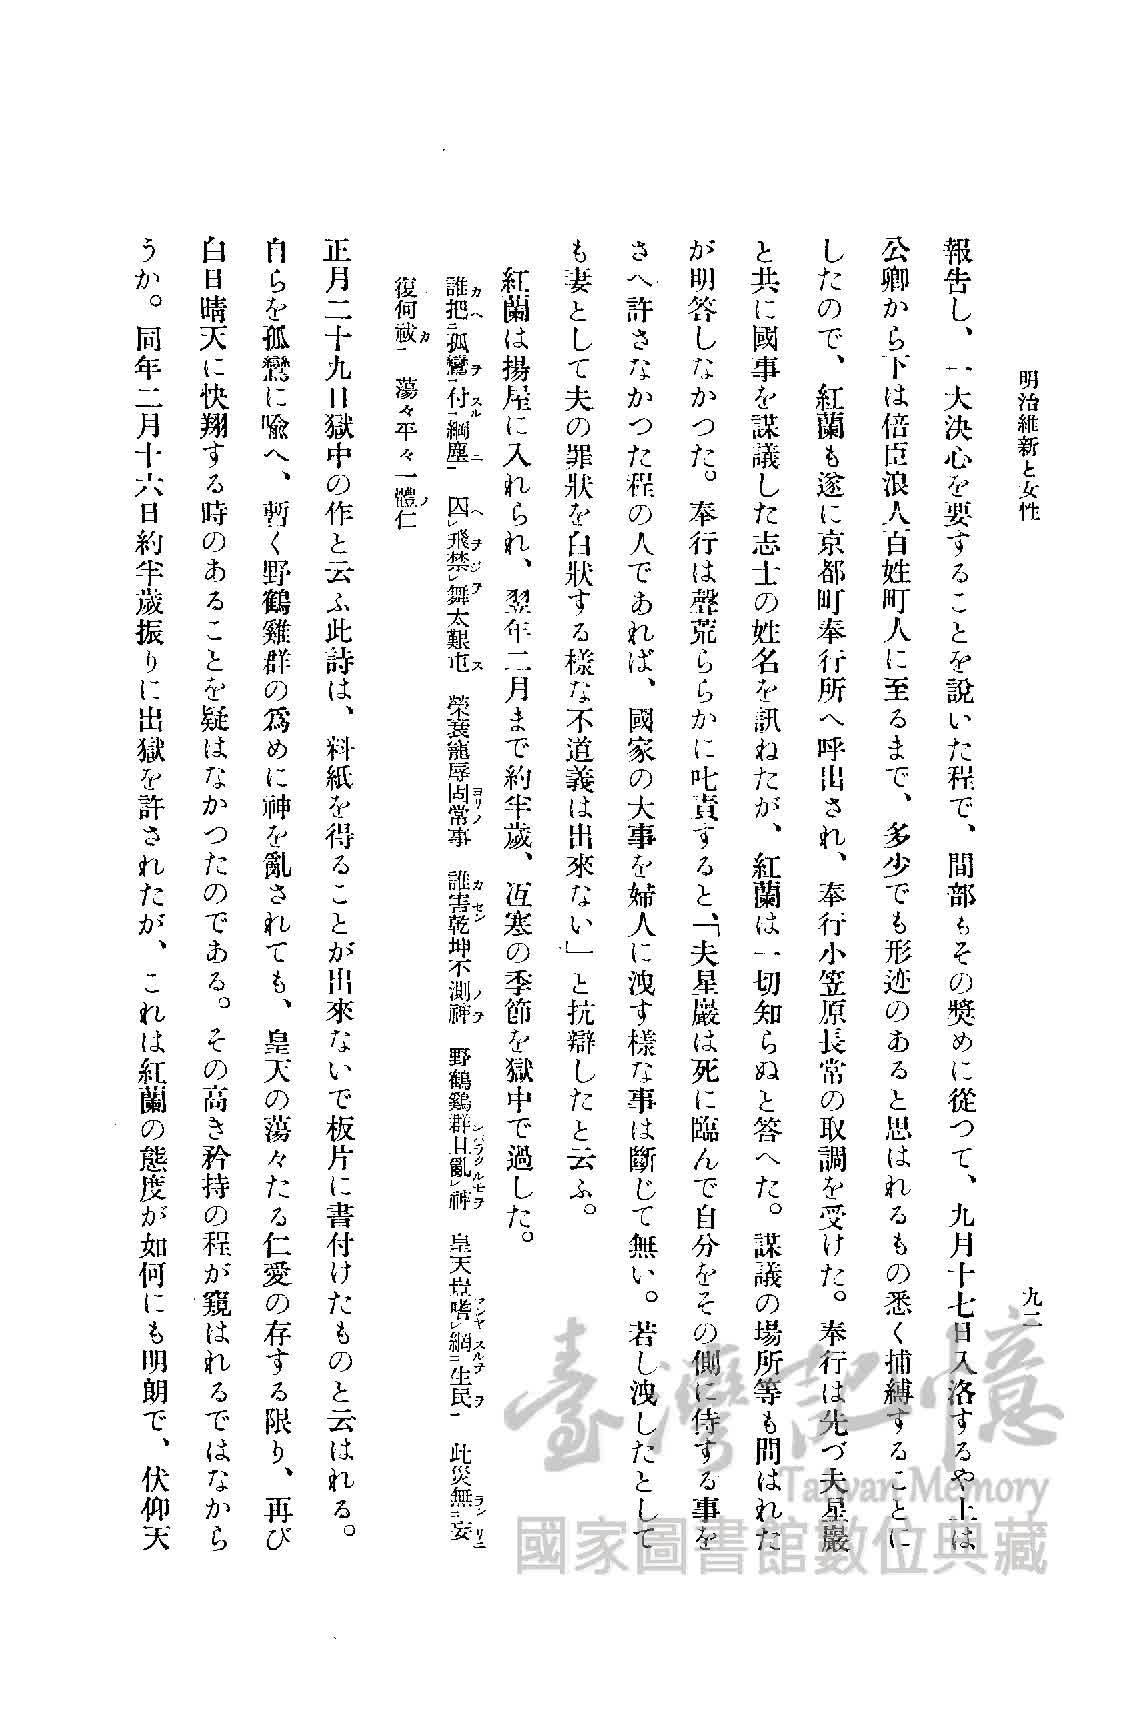 明治維新と女性
九二
報告し、一大決心を要することを說いた程で、間部もその奬めに從つて、九月十七日入洛するや上は
公卿から下は倍臣浪人百姓町人に至るまで、多少でも形迹のあると思はれるもの悉く捕縛することに
したので、紅蘭も遂に京都町奉行所へ呼出され、奉行小笠原長常の取調を受けた。奉行は先づ夫星巖
と共に國事を謀議した志士の姓名を訊ねたが、紅蘭は一切知らぬと答へた。謀議の場所等も問はれた
が明答しなかつた。奉行は聲荒ららかに叱責すると、「夫星巖は死に臨んで自分をその側に侍する事を
さへ許さなかつた程の人であれば、國家の大事を婦人に洩す樣な事は斷じて無い。若し洩したとして
も妻として夫の罪狀を白狀する樣な不道義は出來ない」と抗辯したと云ふ。
紅蘭は揚屋に入れられ、翌年二月まで約半歲、冱寒の季節を獄中で過した。
誰把孤鸞付網塵 囚飛禁舞太艱屯 榮衰寵辱固常事 誰害乾坤不測神 野鶴鷄群且亂神 皇天豈嗜網生民 此災無妄
復何祓 蕩々平々一體仁
正月二十九日獄中の作と云ふ此詩は、料紙を得ることが出來ないで板片に書付けたものと云はれる。
自らを孤鸞に喩へ、暫く野鶴雞群の爲めに神を亂されても、皇天の蕩々たる仁愛の存する限り、再び
白日晴天に快翔する時のあることを疑はなかつたのである。その高き矜持の程が窺はれるではなから
うか。同年二月十六日約半歲振りに出獄を許されたが、これは紅蘭の態度が如何にも明朗で、伏仰天
臺灣記憶
Taiwan Memory
國家圖書館數位典藏